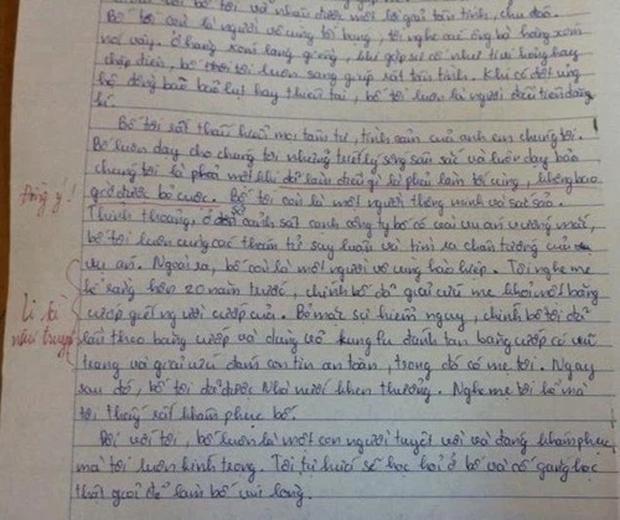 bố tôi và nhận được một lời giải tận tình, chu đáo.
Bố tôi còn là người vô cùng tốt bụng, tôi nghe các ông bà hàng xóm
nói vậy. Ở hàng xóm láng giềng, khi gặp sự cố như tivi hỏng hay
chập điện, bố tôi luôn sang giúp rất tận tình. Khi có đợt ủng
hộ đồng bào bão lụt hay thiên tai, bố tôi luôn là người đầu tiên đăng
kí.
Bố tôi rất thấu hiểu mọi tâm tư, tình cảm của anh em chúng tôi.
Bố luôn dạy cho chúng tôi những triết lý sống sâu sắc và luôn dạy bảo
chúng tôi là phải một khi đã làm điều gì là phải làm tới cùng, không bao
Đồng ý! giờ được bỏ cuộc. Bố tôi còn là một người thông minh và sắc sảo.
Thỉnh thoảng, ở cảnh sát cạnh công ty bố có vài vụ án vướng mắc,
bố tôi luôn cùng các thám tử suy luận và tìm ra chân tướng của
vụ án. Ngoài ra, bố còn là một người vô cùng hào hiệp. Tôi nghe mẹ
kể rằng hơn 20 năm trước, chính bố đã giải cứu mẹ khỏi một băng
Li kì cướp giết người cướp của. Bỏ mặc sự hiểm nguy, chính bố tôi đã
như truyện lẩn theo băng cướp và dùng võ kungfu đánh tan băng cướp có vũ
trang và giải cứu đám con tin an toàn, trong đó có mẹ tôi. Ngay
sau đó, bố tôi đã được Nhà nước khen thưởng. Nghe mẹ tôi kể mà
tôi thấy rất khâm phục bố.
Đối với tôi, bố luôn là một con người tuyệt vời và đáng khâm phục
mà tôi luôn kính trọng. Tôi tự hứa sẽ học hỏi ở bố và cố gắng học
thật giỏi để làm bố vui lòng.